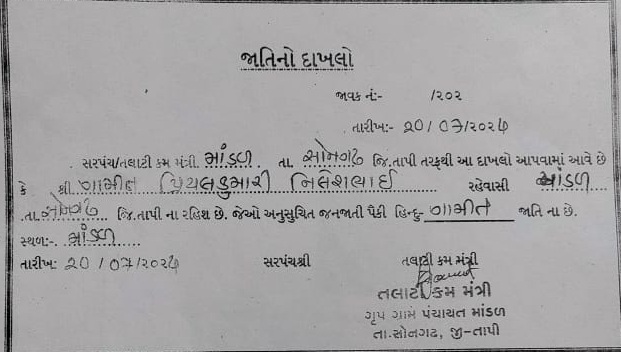 જાતિનો દાખલો
જાવક નં:- /૨૦૨
તારીખ:- 20/07/૨૦૨૫
સરપંચ/તલાટી કમ મંત્રી માંડળ તા. સોનગઢ જિ.તાપી તરફથી આ દાખલો આપવામાં આવે છે
કે શ્રી ગામીત પ્રિયલકુમારી નિલેશભાઈ રહેવાસી માંડળ
તા. સોનગઢ જિ.તાપી ના રહિશ છે. જેઓ અનુસુચિત જનજાતી પૈકી હિન્દુ- ગામીત જાતિ ના છે.
સ્થળ:- માંડળ
તારીખ: 20/07/૨૦૨૫ સરપંચશ્રી તલાટી કમ મંત્રી
તલાટી કમ મંત્રી
ગૃપ ગ્રામ પંચાયત માંડળ
તા.સોનગઢ, જી-તાપી